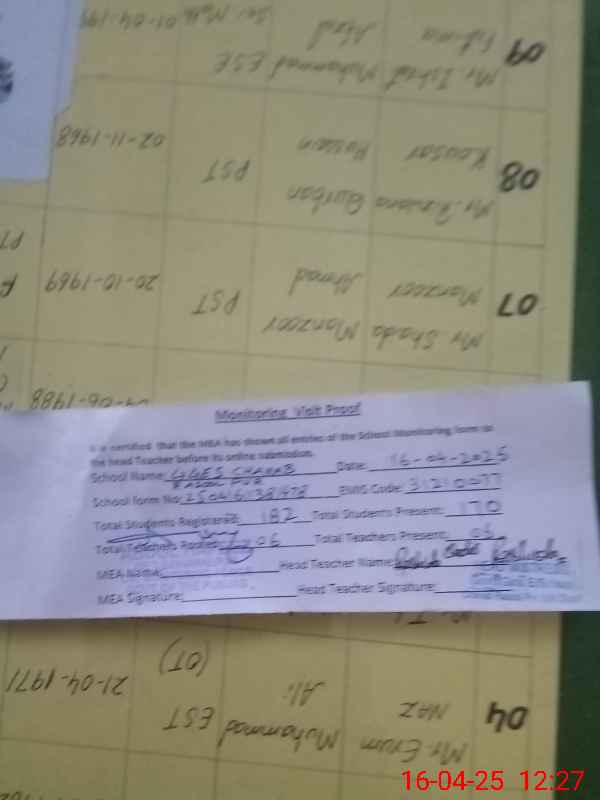 Monitoring Visit Proof
It is certified that the MEA has shown all entries of the School Monitoring form to
the head Teacher before its online submission.
School Name: GGES CHARAB Date: 16-04-2025
RASOOL PUR
School form No: EMIS Code: 31210077
Total Students Registered: 182 Total Students Present: 170
Total Teachers Posted: 06 Total Teachers Present:
MEA Name: Head Teacher Name:
MEA Signature: Head Teacher Signature:
04 Mr. Erum Muhammad EST 21-04-1971
NAZ Ali (OT)
04-06-1988
07 Mr Shada Manzoor PST 20-10-1969
Manzoor Ahmad
08 Mr. Qurban PST 02-11-1968
Kousar Hussain
09 Mr. Ishrat Muhammad ESE
Fatima Afzal 01-04-199
16-04-25 12:27